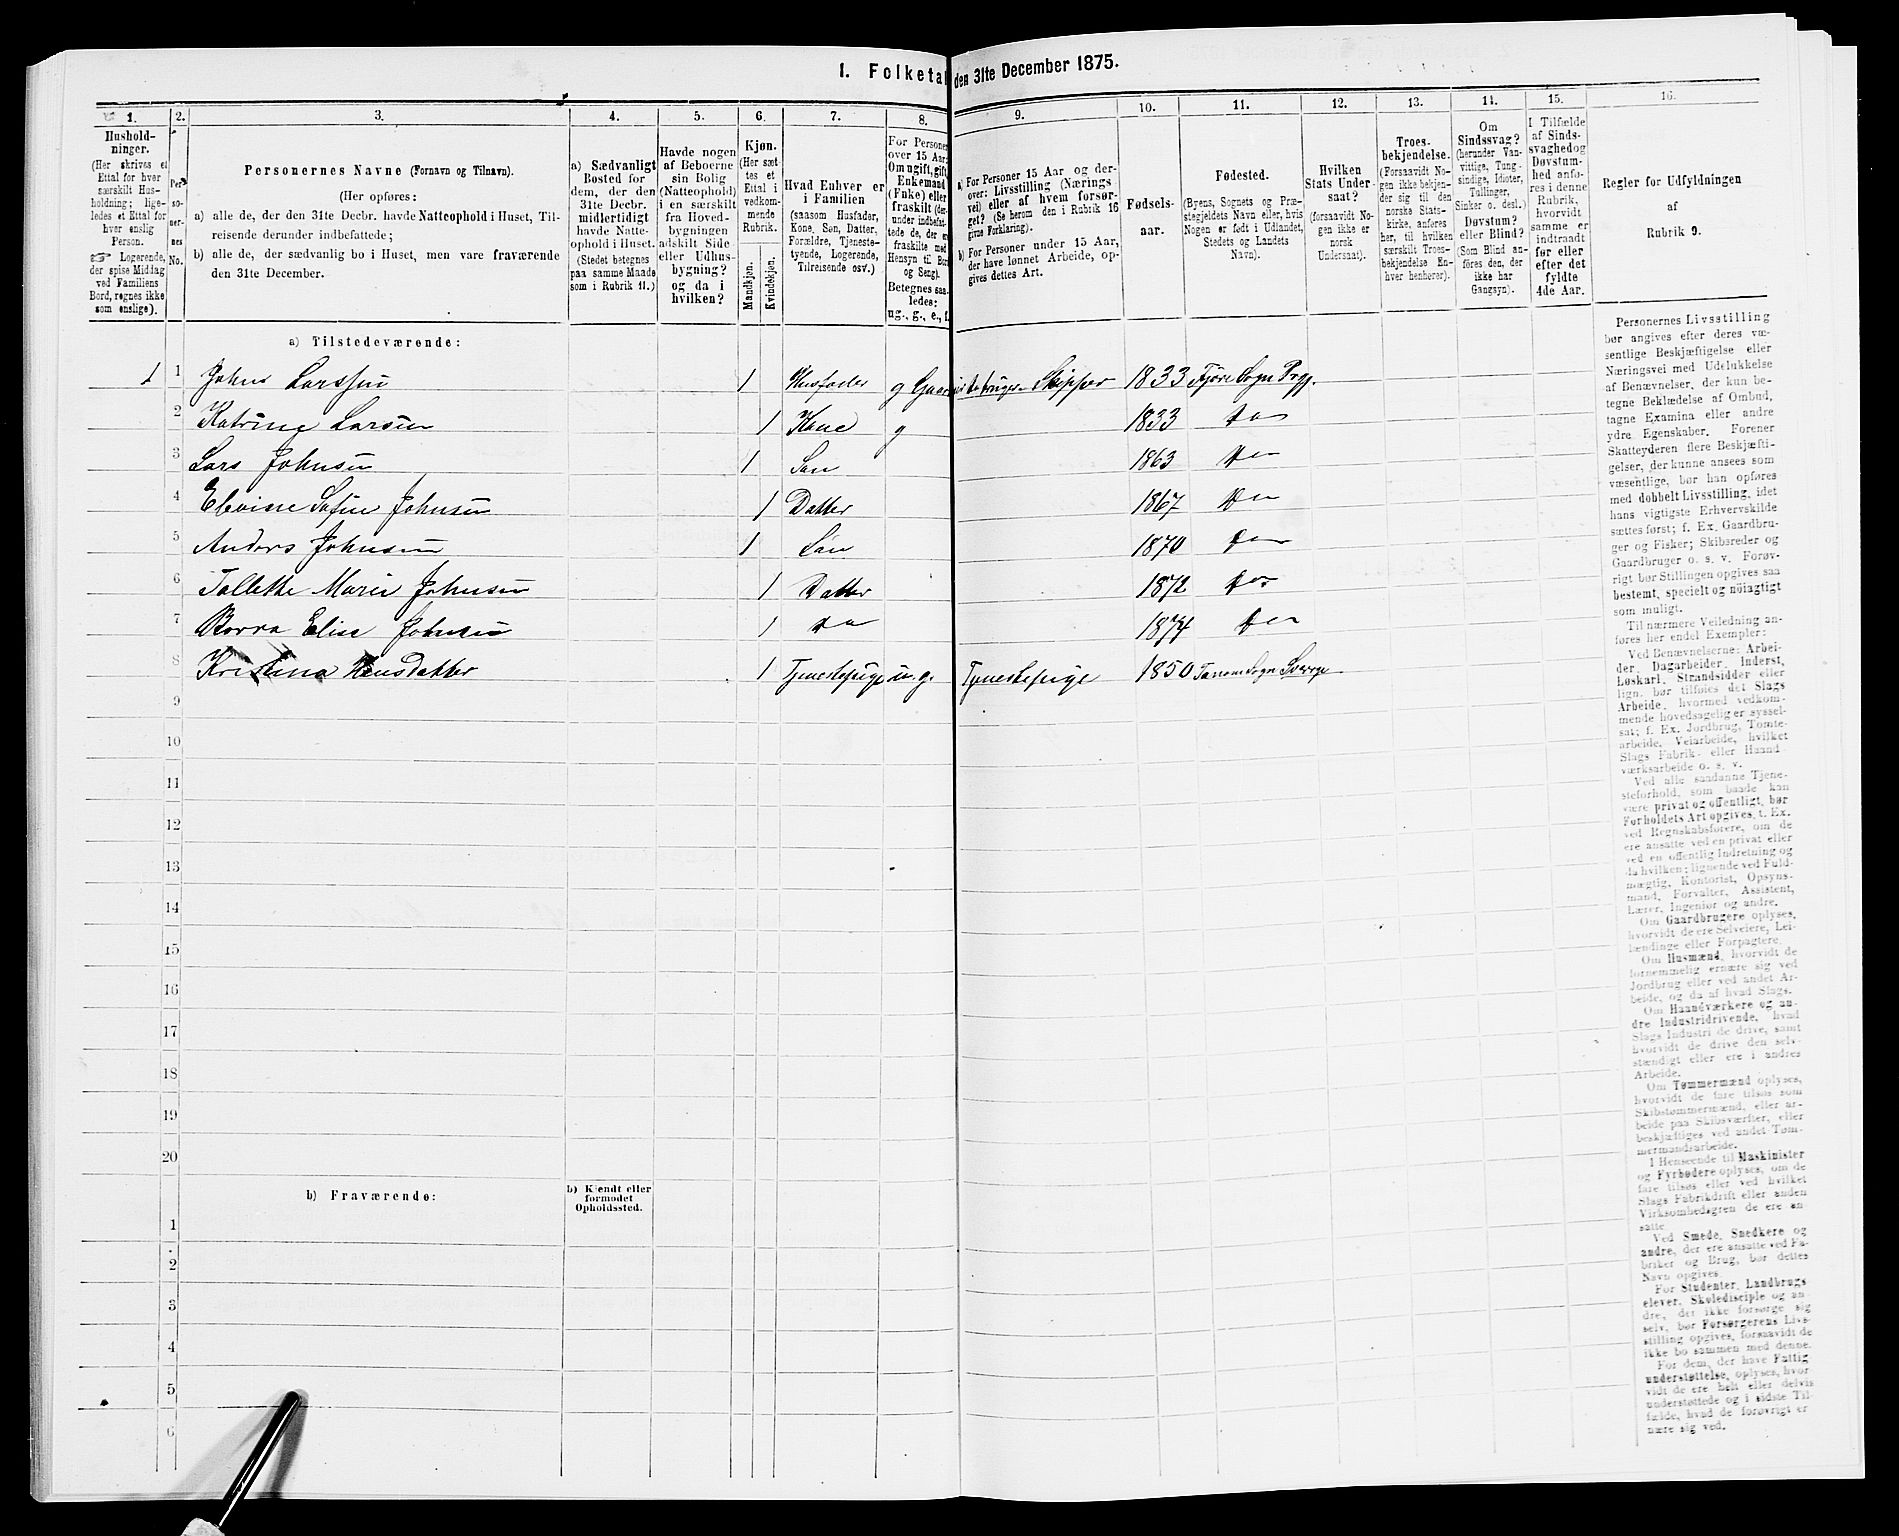 1. Folketal den 31te December 1875.
1. 2. 3. 4. 5. 6. 7. 8. 9. 10. 11. 12. 13. 14. 15. 16.
Hushold-
ninger.
(Her skrives et
Ettal for hver
særskilt Hus-
holdning; lige-
ledes et Ettal for
hver enslig
Person.
☞ Logerende,
der spise Middag
ved Familiens
Bord, regnes ikke
som enslige).
Per-
so-
ner-
nes
No.
Personernes Navne (Fornavn og Tilnavn).
(Her opføres:
a) alle de, der den 31te Decbr. havde Natteophold i Huset, Til-
reisende derunder indbefattede;
b) alle de, der sædvanlig bo i Huset, men vare fraværende
den 31te December.
a) Sædvanligt
Bosted for
dem, der den
31te Decbr.
midlertidigt
havde Natte-
ophold i Huset.
(Stedet betegnes
paa samme Maade
som i Rubrik 11.)
Havde nogen
af Beboerne
sin Bolig
(Natteophold)
i en særskilt
fra Hoved-
bygningen
adskilt Side
eller Udhus-
bygning?
og da i
hvilken?
Kjøn.
(Her sæt-
tes et
Ettal i
vedkom-
mende
Rubrik.
Mandkjøn.
Kvindekjøn.
Hvad Enhver er
i Familien
(saasom Husfader,
Kone, Søn, Datter,
Forældre, Tjeneste-
tyende, Logerende,
Tilreisende osv.)
For Personer
over 15 Aar:
Om ugift, gift,
Enkemand
(Enke) eller
fraskilt (der-
under indbefat-
tede de, der ere
fraskilte med
Hensyn til Bord
og Seng).
Betegnes saa-
ledes:
ug., g., e., f.
a) For Personer 15 Aar og der-
over: Livsstilling (Nærings
vei) eller af hvem forsør-
get? (Se herom den i Rubrik 16
givne Forklaring).
b) For Personer under 15 Aar,
der have lønnet Arbeide, op-
gives dettes Art.
Fødsels-
aar.
Fødested.
(Byens, Sognets og Præ-
stegjeldets Navn eller, hvis
Nogen er født i Udlandet,
Stedets og Landets
Navn).
Hvilken
Stats Under-
saat?
(forsaavidt No-
gen ikke er
norsk
Undersaat).
Troes-
bekjendelse.
(Forsaavidt No-
gen ikke bekjen-
der sig til den
norske Stats-
kirke, anføres
her, til hvilken
særskilt Troes-
bekjendelse En-
hver henhører).
Om
Sindssvag?
(herunder Van-
vittige, Tung-
sindige, Idioter,
Tullinger,
Sinker o. desl.)
Døvstum?
eller Blind?
(Som Blind an-
føres den, der
ikke har
Gangsyn).
I Tilfælde
af Sinds-
svaghed og
Døvstum-
hed anfø-
res i denne
Rubrik,
hvorvidt
samme er
indtraadt
før eller
efter det
fyldte
4de Aar.
Regler for Udfyldningen
af
Rubrik 9.
a) Tilstedeværende:
1 1 Johns Larssen 1 Husfader g Gaardbebruger Skipper 1833 Fjøre Sogn Prgj.
2 Katrine Larsen 1 Kone g 1833 do
3 Lars Johnsen 1 Søn 1863 do
4 Elevine Sofie Johnsen 1 Datter 1867 do
5 Anders Johnsen 1 Søn 1870 do
6 Tallette Marie Johnsen 1 Datter 1872 do
7 Borra Elise Johnsen 1 do 1874 do
8 Kristina Hansdatter 1 Tjenestepige u.g. Tjenestepige 1850 Tanom Sogn Sverge
9
10
11
12
13
14
15
16
17
18
19
20
b) Fraværende:
b) Kjendt eller
formodet
Opholdssted.
1
2
3
4
5
6
Personernes Livsstilling
bør angives efter deres væ-
sentlige Beskjæftigelse eller
Næringsvei med Udelukkelse
af Benævnelser, der kun be-
tegne Beklædelse af Ombud,
tagne Examina eller andre
ydre Egenskaber. Forener
Skatteyderen flere Beskjæfti-
gelser, der kunne ansees som
væsentlige, bør han opføres
med dobbelt Livsstilling, idet
hans vigtigste Erhvervskilde
sættes først; f. Ex. Gaardbru-
ger og Fisker; Skibsreder og
Gaardbruger o. s. v. Forøv-
rigt bør Stillingen opgives saa
bestemt, specielt og nøiagtigt
som muligt.
Til nærmere Veiledning an-
føres her endel Exempler:
Ved Benævnelserne: Arbei-
der, Dagarbeider, Inderst,
Løskarl, Strandsidder eller
lign. bør tilføies det Slags
Arbeide, hvormed vedkom-
mende hovedsagelig er syssel-
sat; f. Ex. Jordbrug, Tomte-
arbeide, Veiarbeide, hvilket
Slags Fabrik- eller Haand-
værksarbeide o. s. v.
Ved alle saadanne Tjene-
steforhold, som baade kan
være privat og offentligt, bør
Forholdets Art opgives, f. Ex.
ved Regnskabsførere, om de
ere ansatte ved en privat eller
ved en offentlig Indretning og
da hvilken; lignende ved Fuld-
mægtig, Kontorist, Opsyns-
mand, Forvalter, Assistent,
Lærer, Ingeniør og andre.
Om Gaardbrugere oplyses,
hvorvidt de ere Selveiere, Lei-
lændinge eller Forpagtere.
Om Husmænd, hvorvidt de
fornemmelig ernære sig ved
Jordbrug eller ved andet Ar-
beide, og da af hvad Slags.
Om Haandværkere og an-
dre Industridrivende, hvad
Slags Industri de drive, samt
hvorvidt de drive den selv-
stændigt eller ere i andres
Arbeide.
Om Tømmermænd oplyses,
hvorvidt de fare tilsøs som
Skibstømmermænd, eller ar-
beide paa Skibsværfter, eller
beskjæftiges ved andet Tøm-
mermandsarbeide.
I Henseende til Maskinister
og Fyrbødere oplyses, om de
fare tilsøs eller ved hvilket
Slags Fabrikdrift eller anden
Virksomhedsgren de ere an-
satte.
Ved Smede, Snedkere og
andre, der ere ansatte ved Fa-
briker og Brug, bør dettes
Navn opgives.
For Studenter, Landbrugs
elever, Skoledisciple og an-
dre, der ikke forsørge sig
selv, bør Forsørgerens Livs-
stilling opgives, forsaavidt de
ikke bo sammen med denne.
For dem, der have Fattig
understøttelse, oplyses, hvor
vidt de ere helt eller delvis
understøttede og i sidste Til-
fælde, hvad de forøvrigt er
nære sig ved.